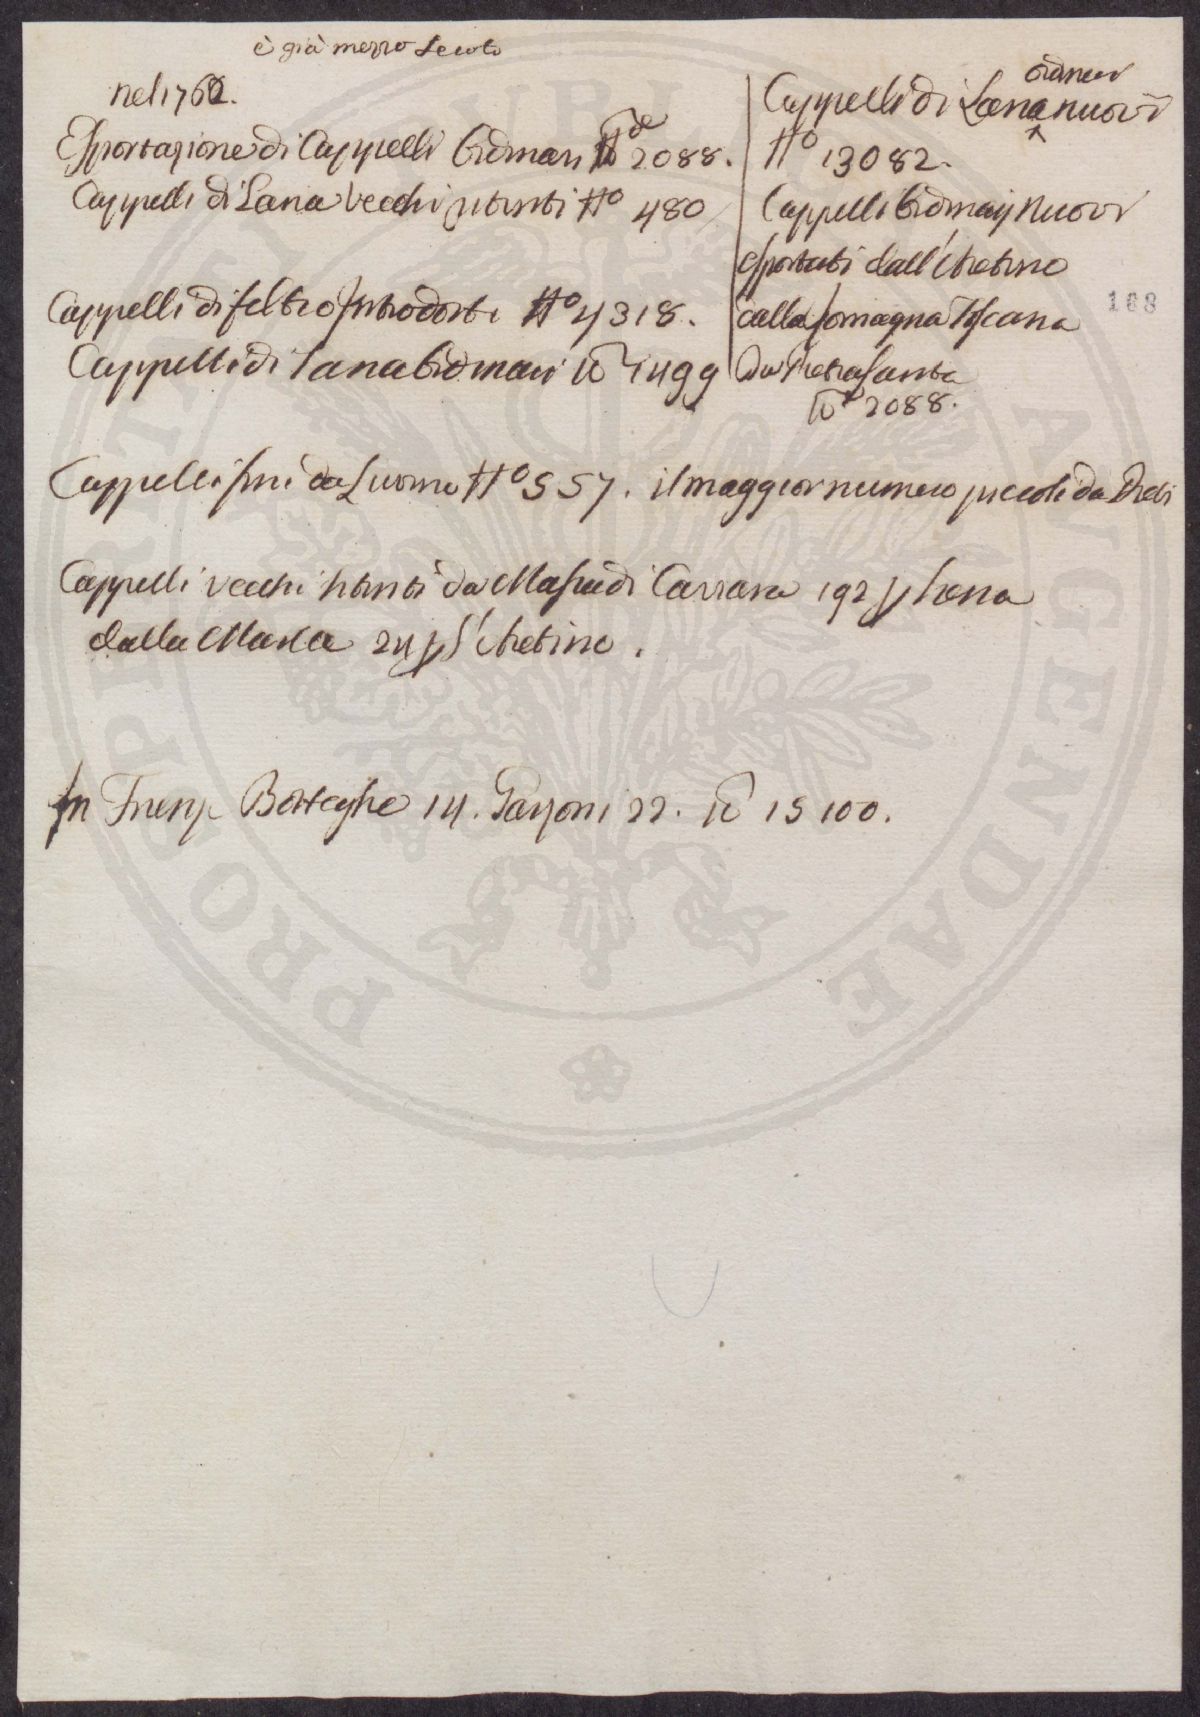 è già mezzo secolo
nel 1762.
Esportazione di Cappelli Ordinari 2088.
Cappelli di Lana Vecchi ritinti No 480
Cappelli di feltro introdotti No 4318.
Cappelli di Lana Ordinari 1499
Cappelli di Lana ordinari nuovi
No 13082.
Cappelli Ordinarj nuovi
esportati dall'Aretino
alla Romagna Toscana
Da Pietra Santa
2088.
168
Cappelli fini da Livorno No 557. il maggior numero piccoli da Preti
Cappelli vecchi ritinti da Massa di Carrara 192 p
dalla Massa 24 p l'Aretino.
In Firenze Botteghe 14. Garzoni 22. 15100.
PUBLICAE AUGENDAE PROSPERITATI